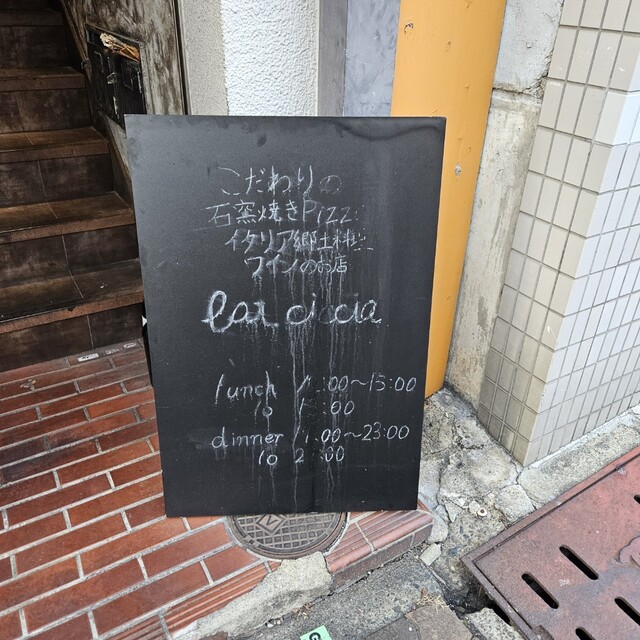 こだわりの
石窯焼きPizz
イタリア郷土料理
ワインのお店
lunch :00~15:00
lo :00
dinner :00~23:00
lo 2 :00